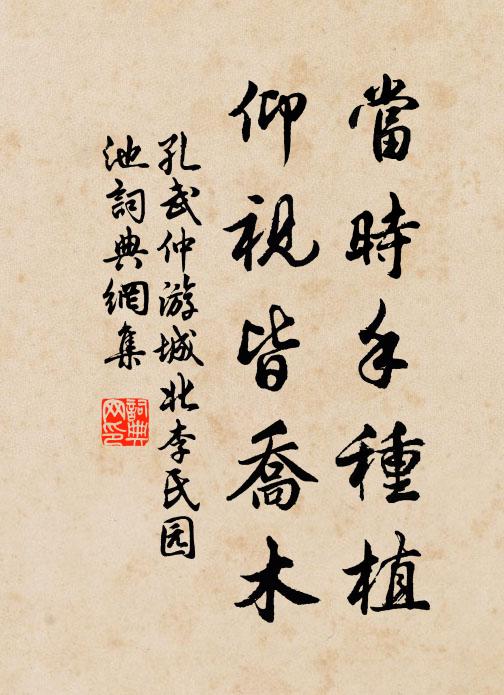 當時手種植
仰視皆喬木
孔武仲游城北李氏园
池詞典網集
詞典网印